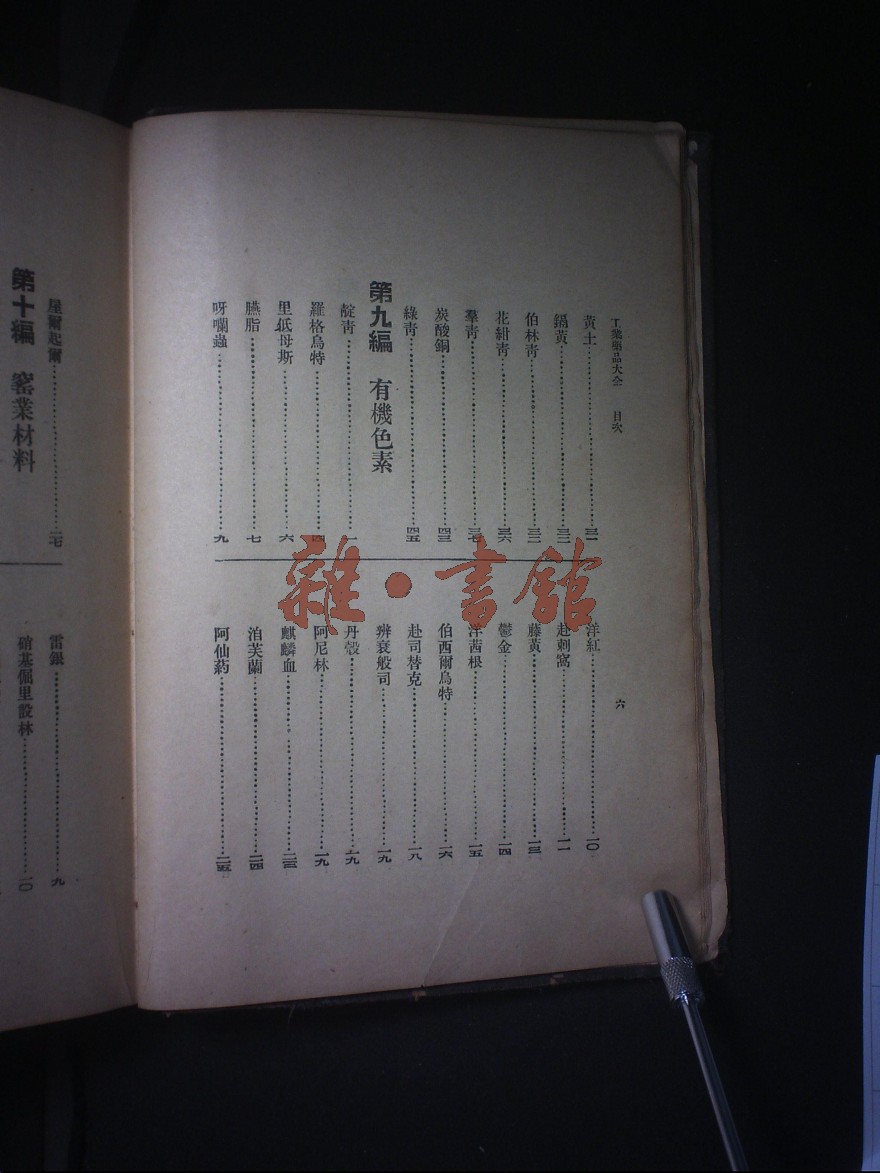 工業藥品大全　目次
六
黃土……三一
鎘黃……三二
伯林靑……三三
花紺靑……三六
羣靑……三七
炭酸銅……四三
綠靑……四五
第九編　有機色素
靛靑……一
羅格烏特……四
里低母斯……六
臙脂……七
呀囒蟲……九
洋紅……一〇
赴刺窩……一一
藤黃……一三
鬱金……一四
洋茜根……一五
伯西爾烏特……一六
赴司替克……一八
辨衰般司……一九
丹殼……一九
阿尼林……一九
麒麟血……二三
泊芙蘭……二四
阿仙葯……二五
雜・書館
第十編　窰業材料
雷銀……九
硝基偏里設林……一〇